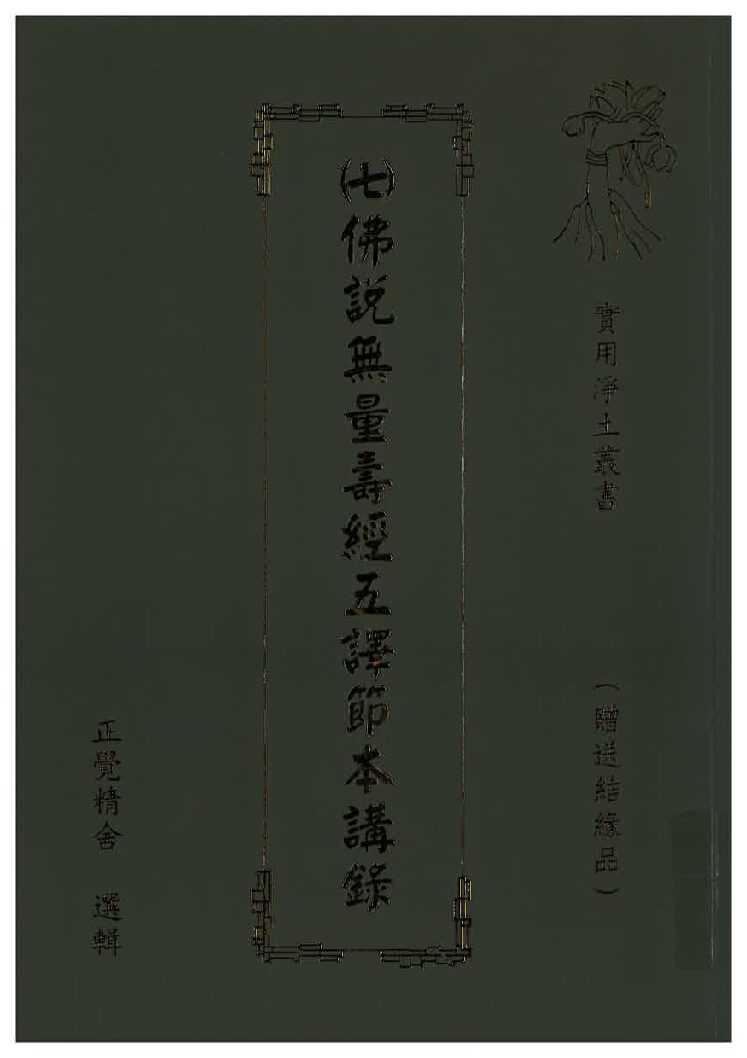 實用淨土叢書
(贈送結緣品)
(七)佛説無量壽經五譯節本講錄
正覺精舍 選輯